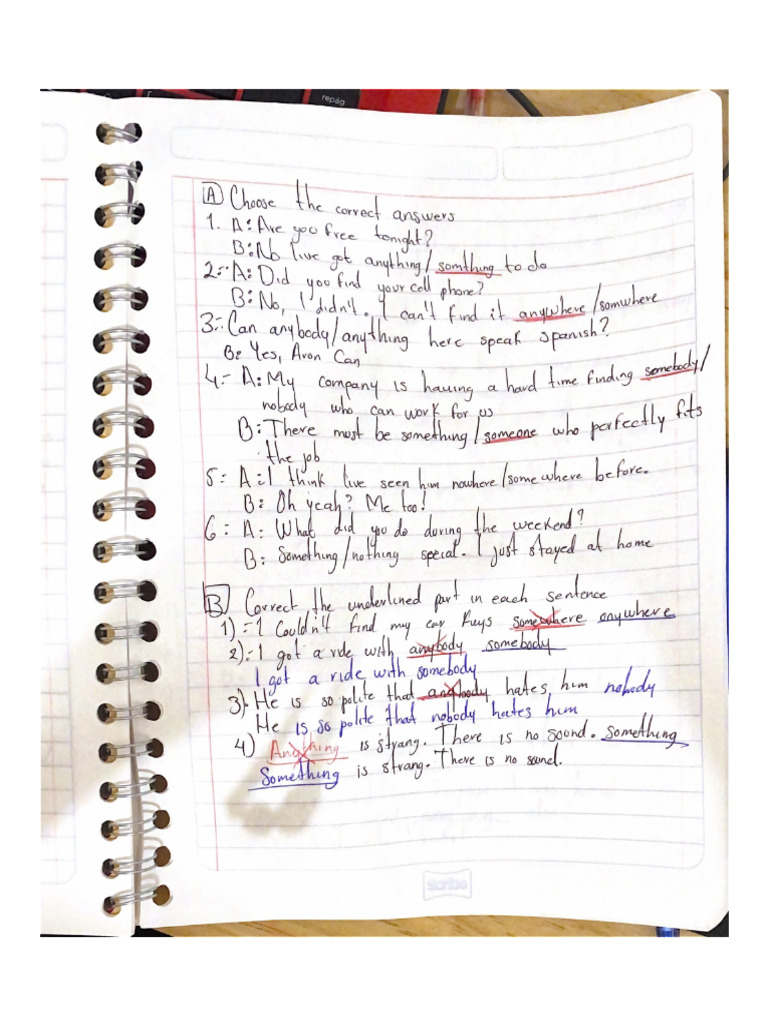 repág
A Choose the correct answers
1. A: Are you free tonight?
B: No I've got anything/somthing to do
2:- A: Did you find your cell phone?
B: No, I didn't. I can't find it anywhere/somwhere
3:- Can anybody/anything here speak spanish?
B: Yes, Aron Can
4:- A: My company is having a hard time finding somebody/
nobody who can work for us
B: There most be something/someone who perfectly fits
the job
5:- A: I think I've seen him nowhere/somewhere before.
B: Oh yeah? Me too!
6:- A: What did you do during the weekend?
B: Something/nothing special. I just stayed at home
B Correct the underlined part in each sentence
1):- I Couldn't find my car keys somewhere anywhere
2):- I got a ride with anybody somebody
I got a ride with somebody
3)- He is so polite that anybody hates him nobody
He is so polite that nobody hates him
4) Anything is strang. There is no sound. Something
Something is strang. There is no sound.
Scribe